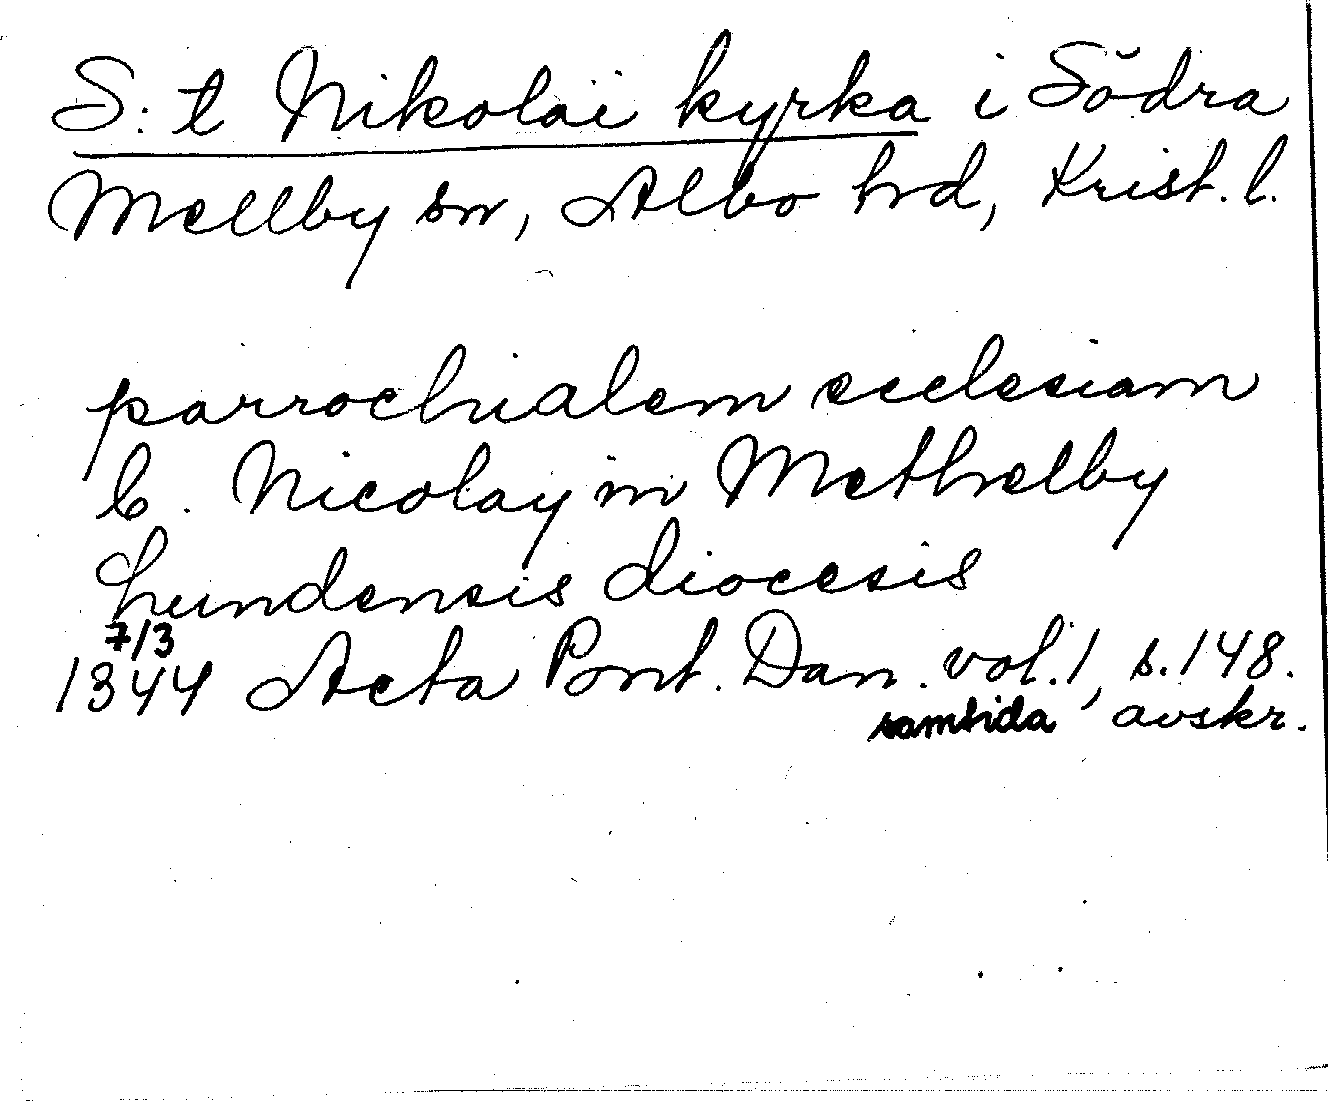 S:t Nikolai kyrka i Södra
Mellby sn, Albo hrd, Krist. l.
parrochialem ecclesiam
b. Nicolay in Methelby
Lundensis diocesis
7/3
1344 Acta Pont. Dan. vol. 1, s. 148.
samtida avskr.